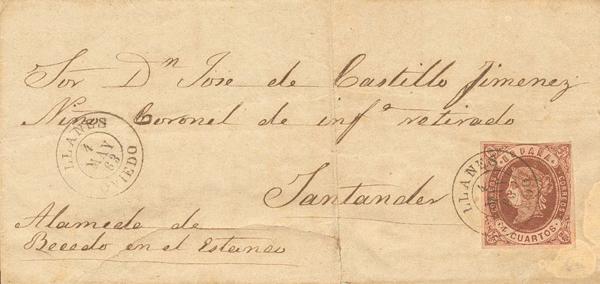 Sor Dn Jose de Castillo Jimenez
Nino Coronel de infa retirado
Santander
Alameda de
Becedo en el Estanco
LLANES
4
MAY
63
OVIEDO
LLANES
ESPAÑA
CORREOS
CUARTOS